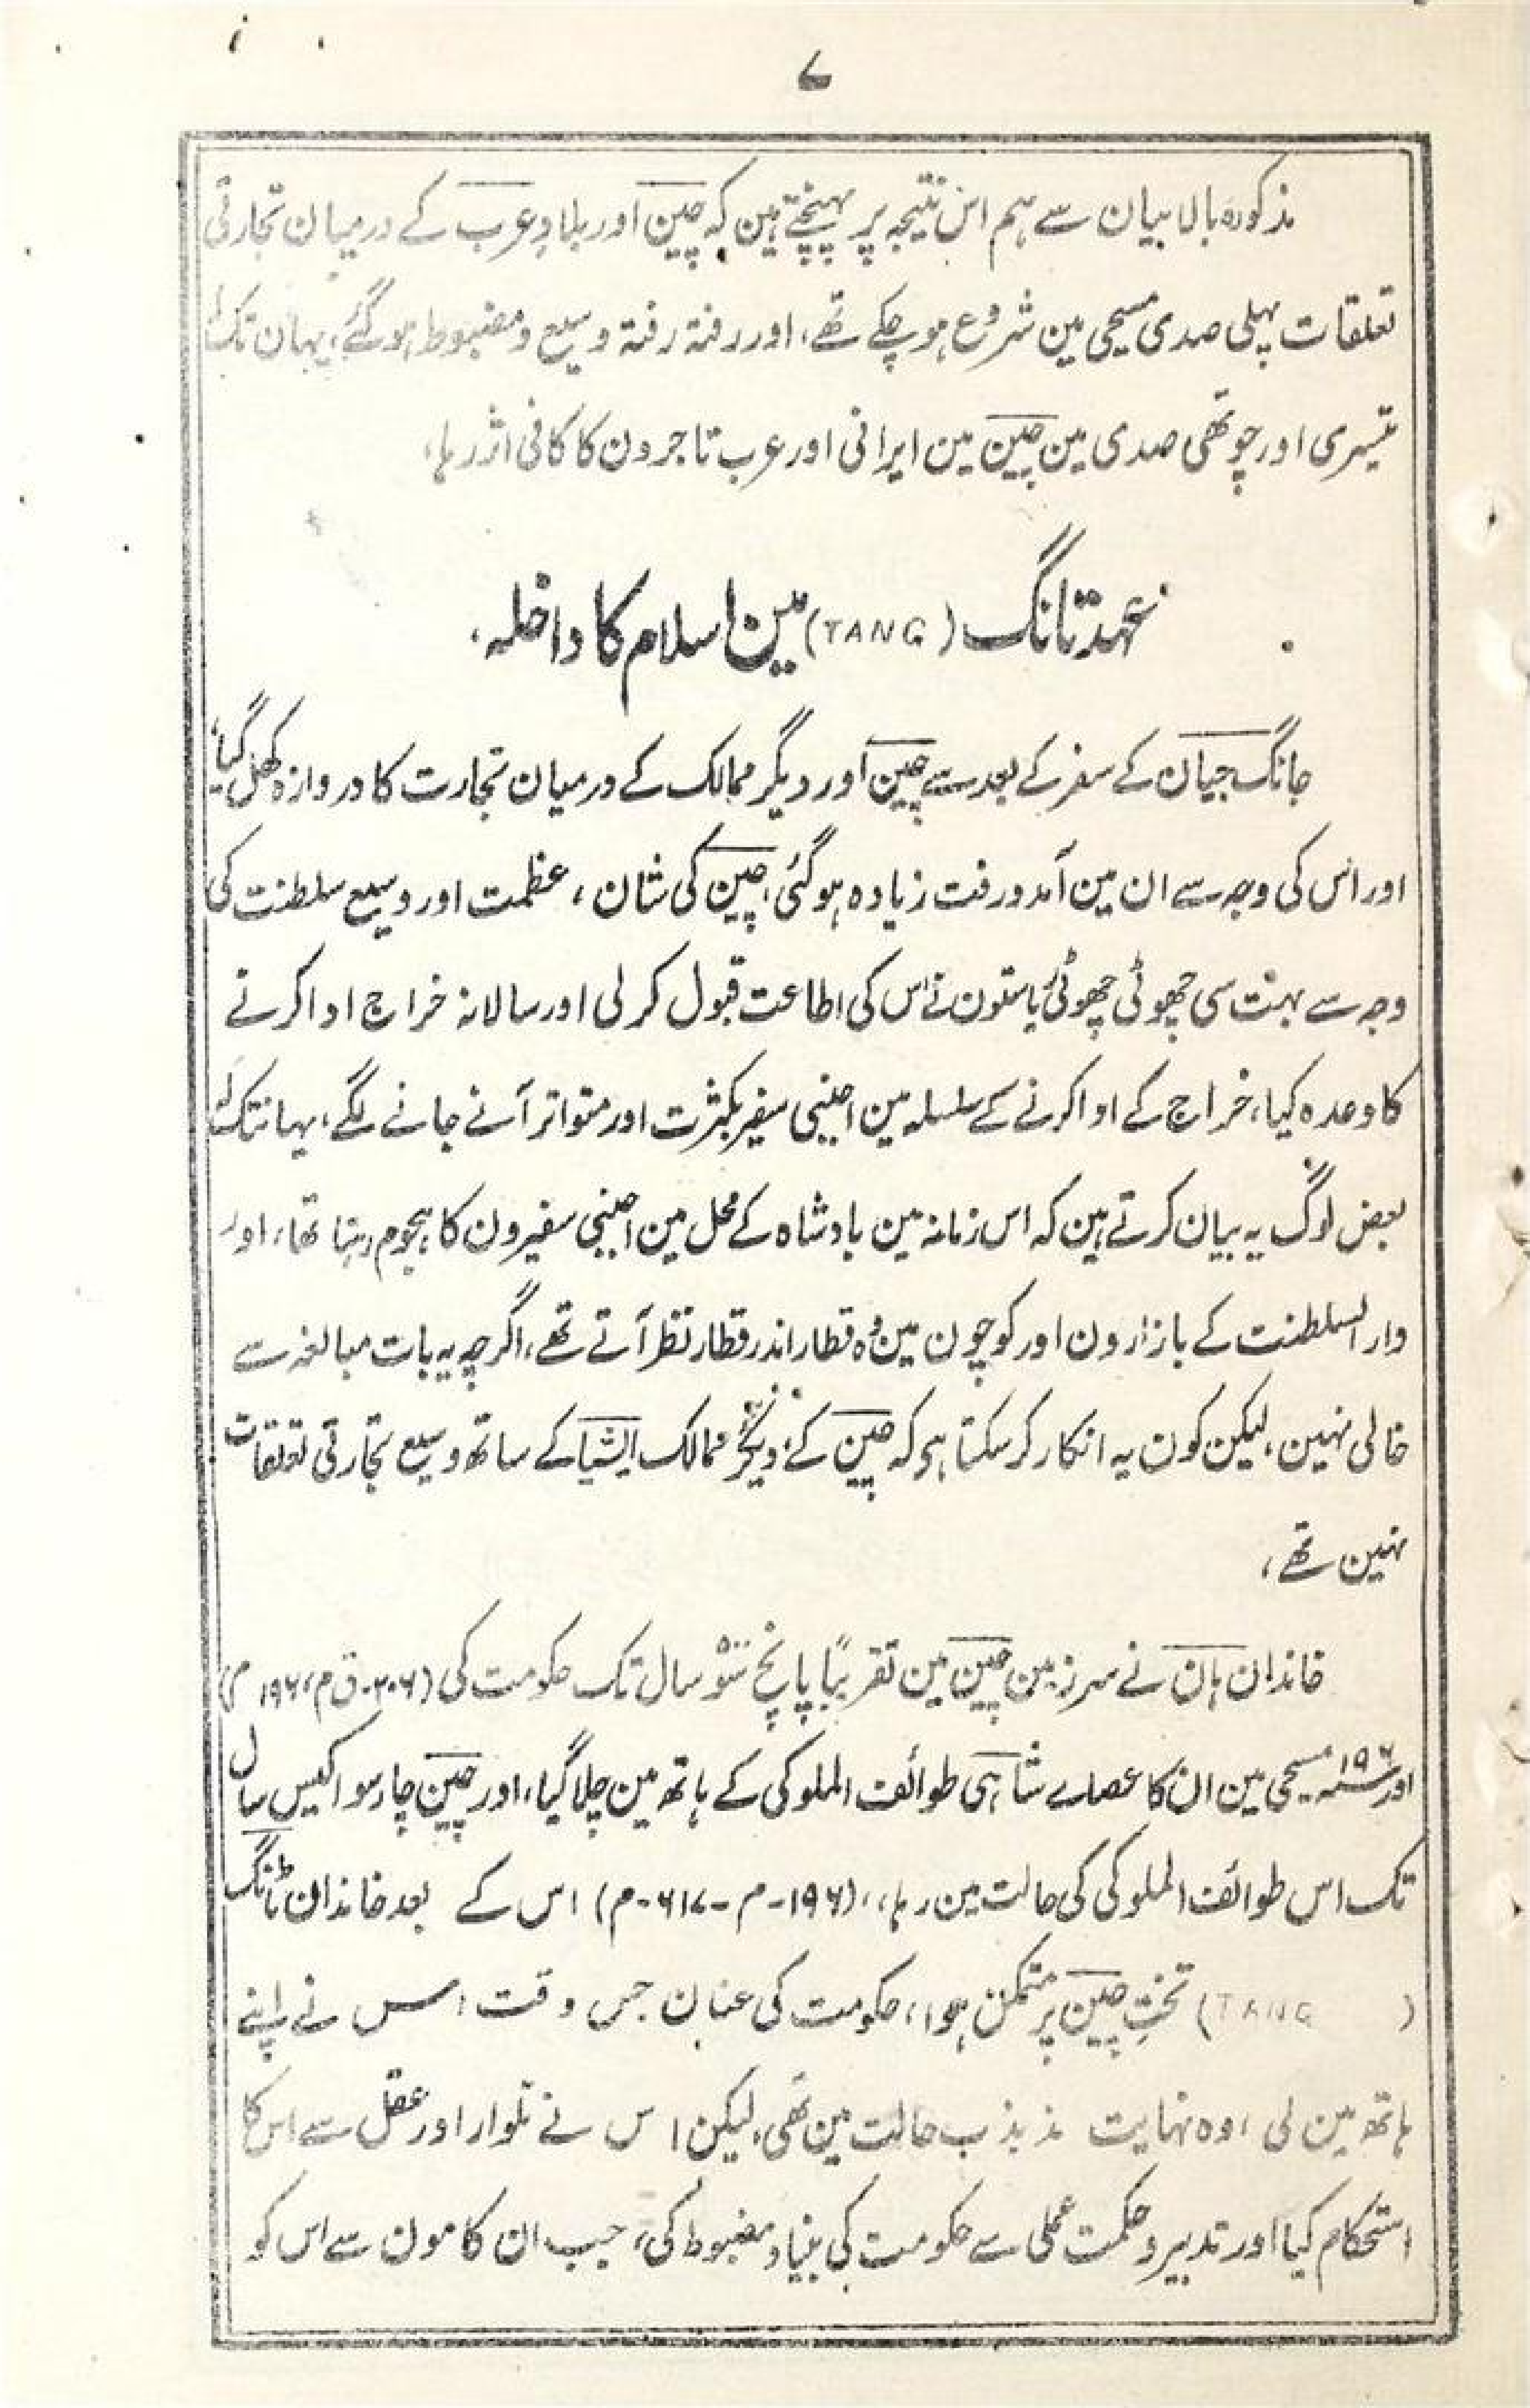 ۷
مذکورہ بالا بیان سے ہم اس نتیجہ پر پہنچتے ہین کہ چین اور بلادِ عرب کے درمیان تجارتی
تعلقات پہلی صدی مسیحی مین شروع ہو چکے تھے، اور رفتہ رفتہ وسیع و مضبوط ہو گئے، یہان تک کہ
تیسری اور چوتھی صدی مین چین مین ایرانی اور عرب تاجرون کا کافی اثر رہا،
عہد تانگ (TANG) مین اسلام کا داخلہ،
جانگ جیان کے سفر کے بعد سے چین اور دیگر ممالک کے درمیان تجارت کا دروازہ کھل گیا،
اور اس کی وجہ سے ان مین آمد و رفت زیادہ ہو گئی، چین کی شان، عظمت اور وسیع سلطنت کی
وجہ سے بہت سی چھوٹی چھوٹی ریاستون نے اس کی اطاعت قبول کر لی اور سالانہ خراج ادا کرنے
کا وعدہ کیا، خراج کے ادا کرنے کے سلسلہ مین اجنبی سفیر بکثرت اور متواتر آنے جانے لگے، یہانتک کہ
بعض لوگ یہ بیان کرتے ہین کہ اس زمانہ مین بادشاہ کے محل مین اجنبی سفیرون کا ہجوم رہتا تھا، اور
دار السلطنت کے بازارون اور کوچون مین وہ قطار اندر قطار نظر آتے تھے، اگرچہ یہ بات مبالغہ سے
خالی نہین، لیکن کون یہ انکار کر سکتا ہو کہ چین کے دیگر ممالک ایشیا کے ساتھ وسیع تجارتی تعلقات
نہین تھے،
خاندان ہان نے سرزمین چین مین تقریبًا پانچ سَو سال تک حکومت کی (۳۰۶-ق م، ۱۹۶ م)
اور ۱۹۶ سنہ مسیحی مین ان کا عصاے شاہی طوائف الملوکی کے ہاتھ مین چلا گیا، اور چین چار سو اکیس سال
تک اس طوائف الملوکی کی حالت مین رہا، (۱۹۶-م-۶۱۷-م) اس کے بعد خاندان تانگ
(TANG) تختِ چین پر متمکن ہوا، حکومت کی عنان جس وقت اس نے اپنے
ہاتھ مین لی، وہ نہایت مذبذب حالت مین تھی، لیکن اس نے تلوار اور عقل سے اس کا
استحکام کیا اور تدبیر و حکمت عملی سے حکومت کی بنیاد مضبوط کی، جب ان کامون سے اس کو